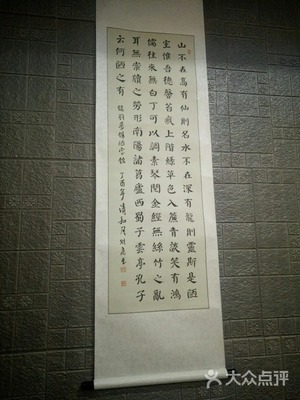 山不在高有仙則名水不在深有龍則靈斯是陋
室惟吾德馨苔痕上階綠草色入簾青談笑有鴻
儒往來無白丁可以調素琴閱金經無絲竹之亂
耳無案牘之勞形南陽諸葛廬西蜀子雲亭孔子
云何陋之有 錄劉禹錫陋室銘 丁酉年清和月
大众点评